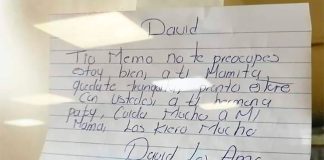 David
Tio Memo no te preocupes
estoy bien, a ti Mamita
quedate tranquila, pronto estare
con ustedes, a ti hermana
paty, Cuida Mucho a Mi
Mama. Los Kiero Mucho
David Los Amo